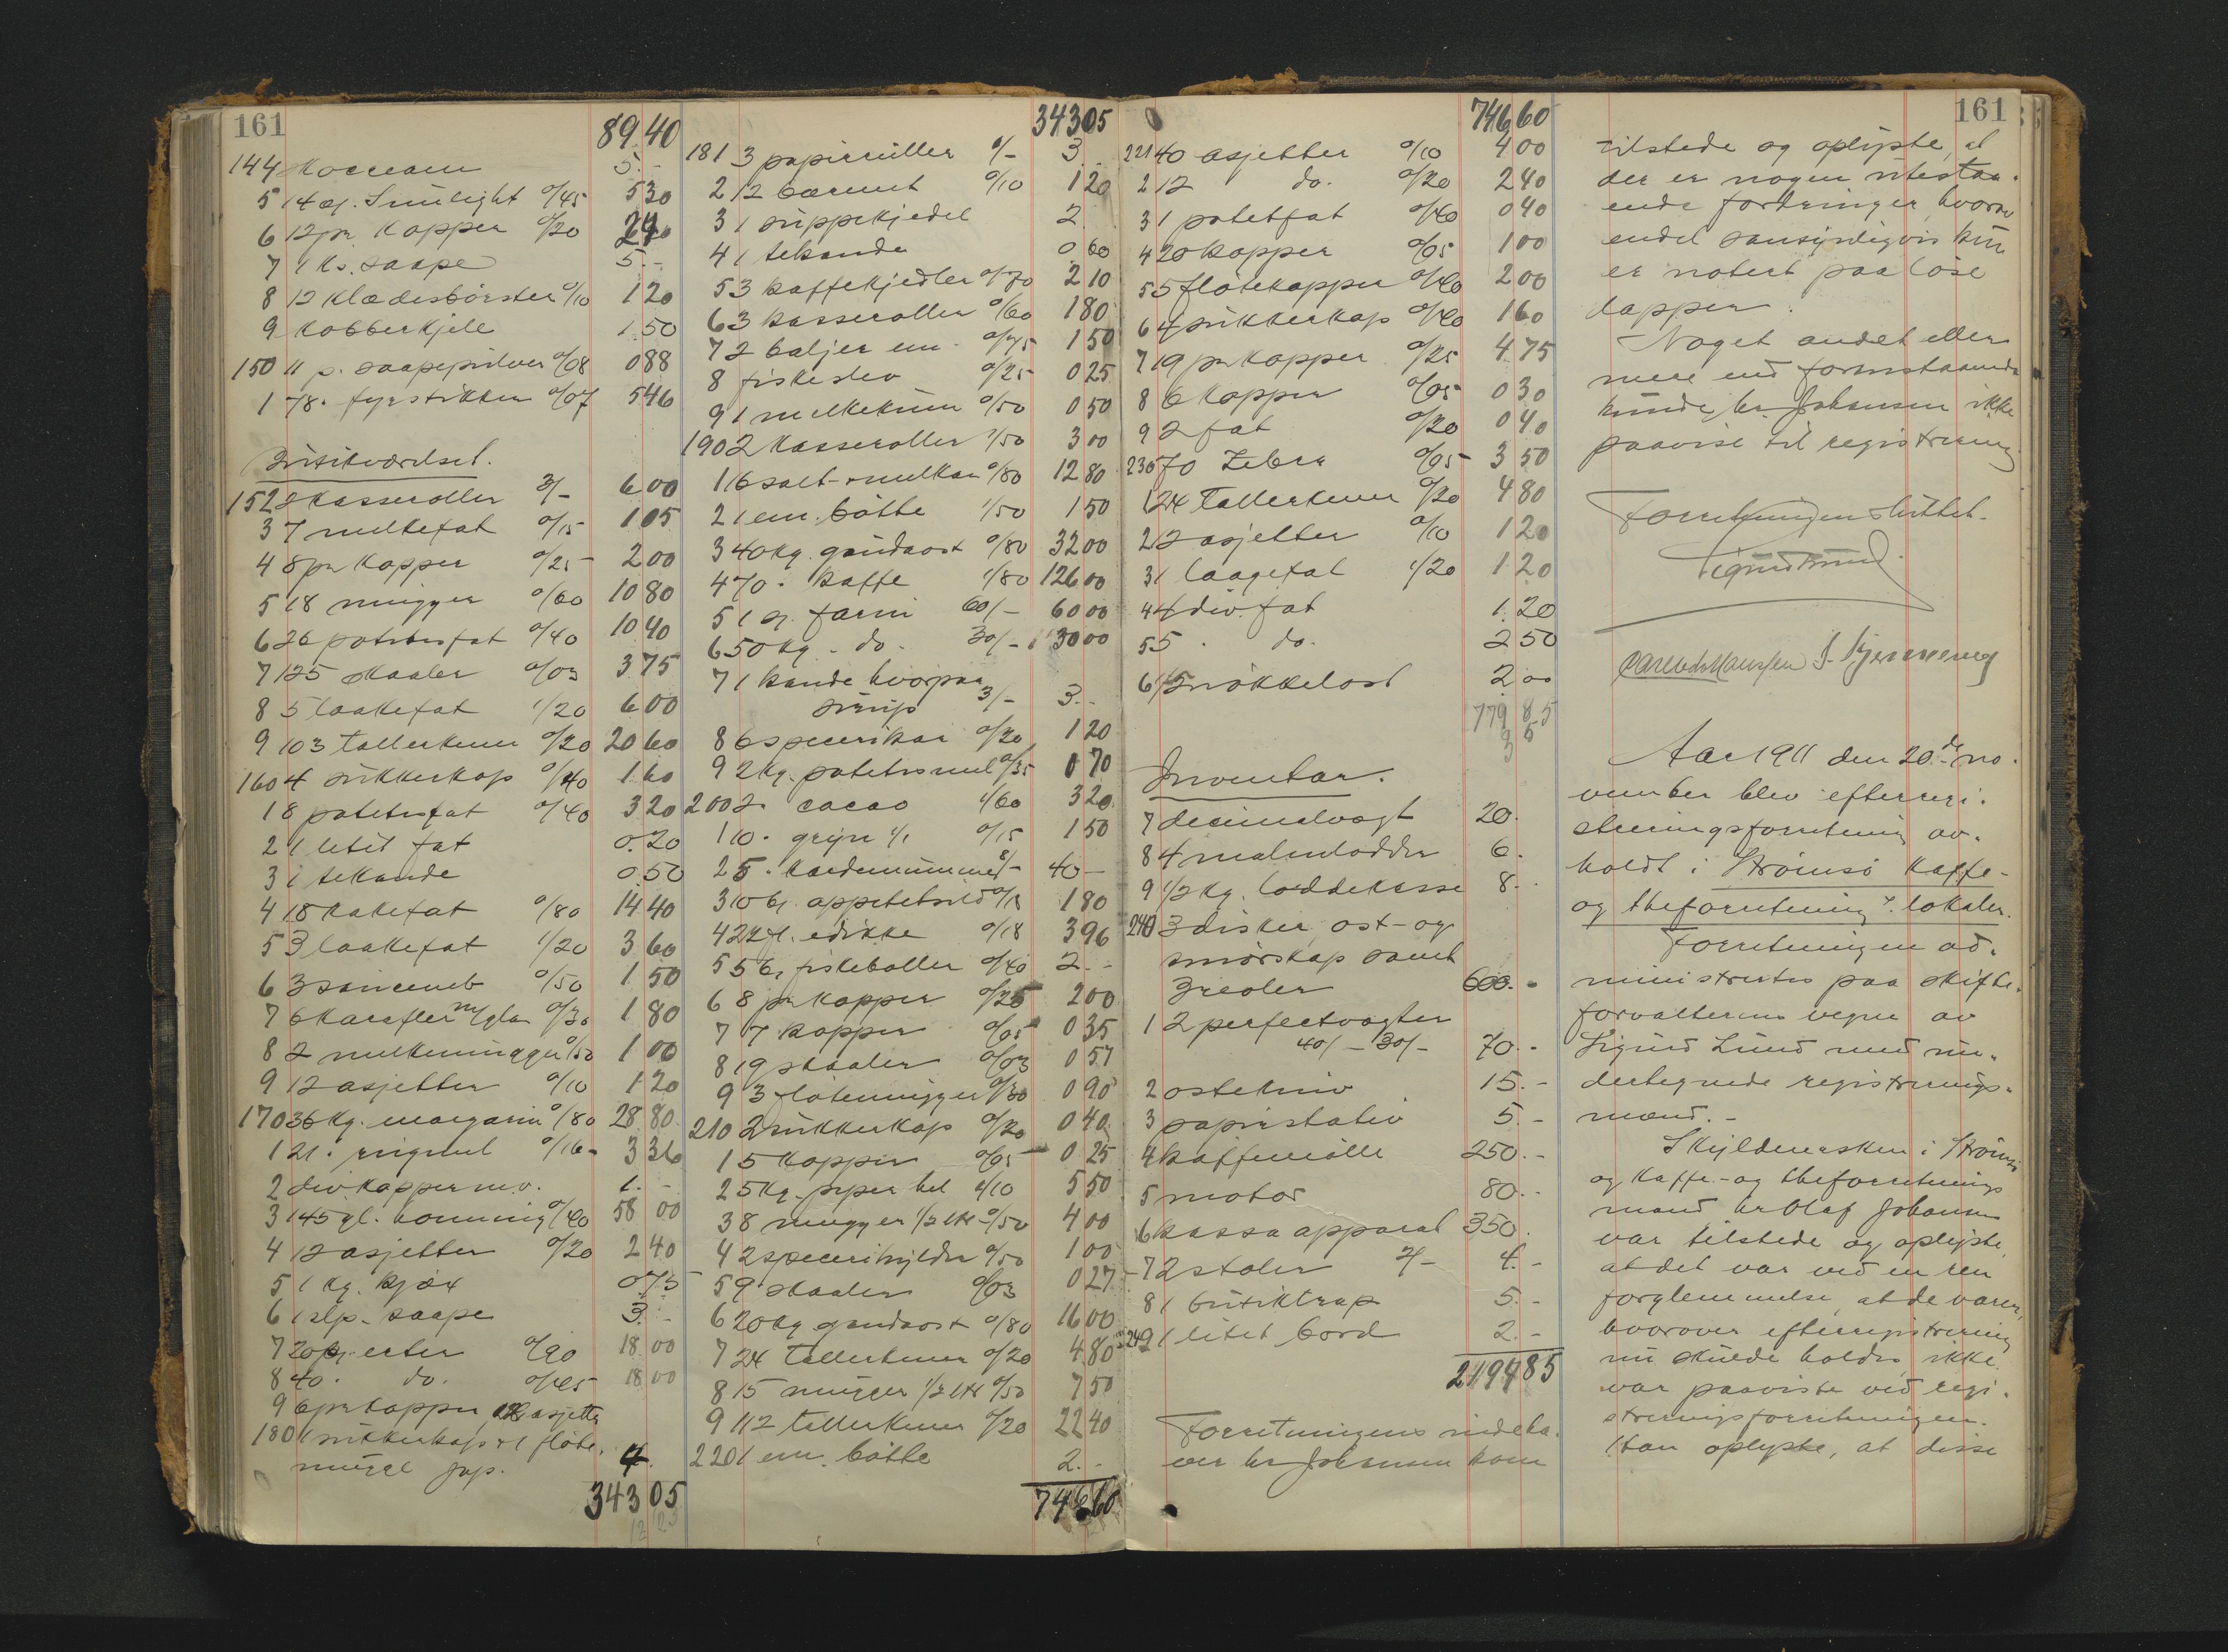 161
89 40
144 
5.-
5 14 eg. Sunlight 0/45 5 30
6 12 pr kopper 0/20 2 40
7 1 ks. saape 5.-
8 12 klædesbørster 0/10 1 20
9 kobberkjele 1.50
150 11 p. saapepulver 0/08 0 88
1 78. fyrstikker 0/07 5 46
152 2 kasseroller 3/- 6 00
3 7 melkefat 0/15 1 05
4 8 pr kopper 0/25 2 00
5 18 mugger 0/60 10 80
6 26 potetesfat 0/40 10 40
7 125 skaaler 0/03 3 75
8 5 laakefat 1/20 6 00
9 103 tallerkener 0/20 20 60
160 4 sukkerkop 0/40 1 60
1 8 potetesfat 0/40 3 20
2 1 litit fat 0.20
3 1 tekande 0 50
4 18 kakefat 0/80 14 40
5 3 laakefat 1/20 3 60
6 3 0/50 1 50
7 6 karafler m/glas 0/30 1 80
8 2 melkemugger 0/50 1 00
9 12 asjetter 0/10 1 20
170 36 kg. margarin 0/80 28 80
1 21. rugmel 0/16 3 36
2 div. kopper m.v. 1.-
3 145 gl. honning 0/40 58 00
4 12 asjetter 0/20 2 40
5 1 kg. kjæx 0.75
6 1 slp. saape 3.-
7 20 erter 0/90 18 00
8 40. do. 0/45 18 00
9 6 pr kopper, asjetter
180 1 sukkerkop & 1 fløte-
mugge jap. 4.
343 05
343 05
181 3 papirruller 1/- 3.-
2 12 0/10 1 20
3 1 suppekjedel 2
4 1 tekande 0.60
5 3 kaffekjedler 0/70 2 10
6 3 kasseroller 0/60 1 80
7 2 baljer em. 0/75 1 50
8 fiskeslev 0/25 0 25
9 1 melkekum 0/50 0 50
190 2 kasseroller 1/50 3 00
1 16 salt- & melkar 0/80 12 80
2 1 em. bøtte 1/50 1 50
3 40 kg. gaudaost 0/80 32 00
4 70. kaffe 1/80 126 00
5 1 farin 60/- 60 00
6 50 kg. do. 30/- 30 00
7 1 kande hvorpaa
sirup 3/- 3.-
8 6 specerikar 0/20 1 20
9 2 kg. potetesmel 0/35 0 70
200 2. cacao 1/60 3 20
1 10. gryn 1/1 0/15 1 50
2 5. kardemumme 8/- 40.-
3 10 bx. appetitsild 0/18 1 80
4 22 fl. edikke 0/18 3 96
5 5 bx. fiskeboller 0/40 2.-
6 8 pr kopper 0/25 2 00
7 7 kopper 0/05 0 35
8 19 skaaler 0/03 0 57
9 3 fløtemugger 0/30 0 90
210 2 sukkerkop 0/20 0 40
1 5 kopper 0/05 0 25
2 5 kg. peper hel 1/10 5 50
3 8 mugger 1/2 ltr 0/50 4 00
4 2 specerihylder 0/50 1 00
5 9 skaaler 0/03 0 27
6 20 kg gaudaost 0/80 16 00
7 24 tallerkener 0/20 4 80
8 15 mugger 1/2 ltr 0/50 7 50
9 112 tallerkener 0/20 22 40
220 1 em. bøtte 2.-
746 60
746 60
221 40 asjetter 0/10 4 00
2 12 do. 0/20 2 40
3 1 potetfat 0/40 0 40
4 20 kopper 0/05 1 00
5 5 fløtekopper 0/40 2 00
6 4 sukkerkop 0/40 1 60
7 19 pr kopper 0/25 4 75
8 6 kopper 0/05 0 30
9 2 fat 0/20 0 40
230 70 Zebra 0/05 3 50
1 24 tallerkener 0/20 4 80
2 12 asjetter 0/10 1 20
3 1 laagefat 1/20 1 20
4 4 div. fat 1.20
5 5. do. 2 50
6 1/2 nøkkelost 2 00
779 85
Inventar.
7 decimalvægt 20.-
8 4 malmlodder 6.-
9 1/2 kg. loddekasse 8.-
240 3 disker, ost- og
smørskap samt
3 reoler 600.-
1 2 perfectvægter
40/- 30/- 70.-
2 ostekniv 15.-
3 papirstativ 5.-
4 kaffemølle 250.-
5 motor 80.-
6 kassaapparat 350.
7 2 stoler 2/- 4.-
8 1 butiktrap 5.-
249 1 litet bord 2.-
2194 85
Forretningens indeha-
ver hr Johansen kom
161
tilstede og oplyste, at
der er nogen utestaa-
ende fordringer, hvorav
endel sansynligvis kun
er notert paa løse
lapper.
Noget andet eller
mere end foranstaaende
kunde hr. Johansen ikke
paavise til registrering
Forretningen sluttet.
Sigurd Lund.
Aar 1911 den 20.de no-
vember blev efterregi-
streringsforretning av-
holdt i Strømsø kaffe-
og theforretning's lokaler.
Forretningen ad-
ministrertes paa skifte-
forvalterens vegne av
Sigurd Lund med un-
dertegnede registrerings-
mænd.-
Skyldneren i Strøms-
ø kaffe- og theforretning
mand hr Olaf Johansen
var tilstede og oplyste,
at det var ved en ren
forglemmelse, at de varer,
hvorover efterregistrering
nu skulde holdes, ikke
var paaviste ved regi-
streringsforretningen.
Han oplyste, at disse